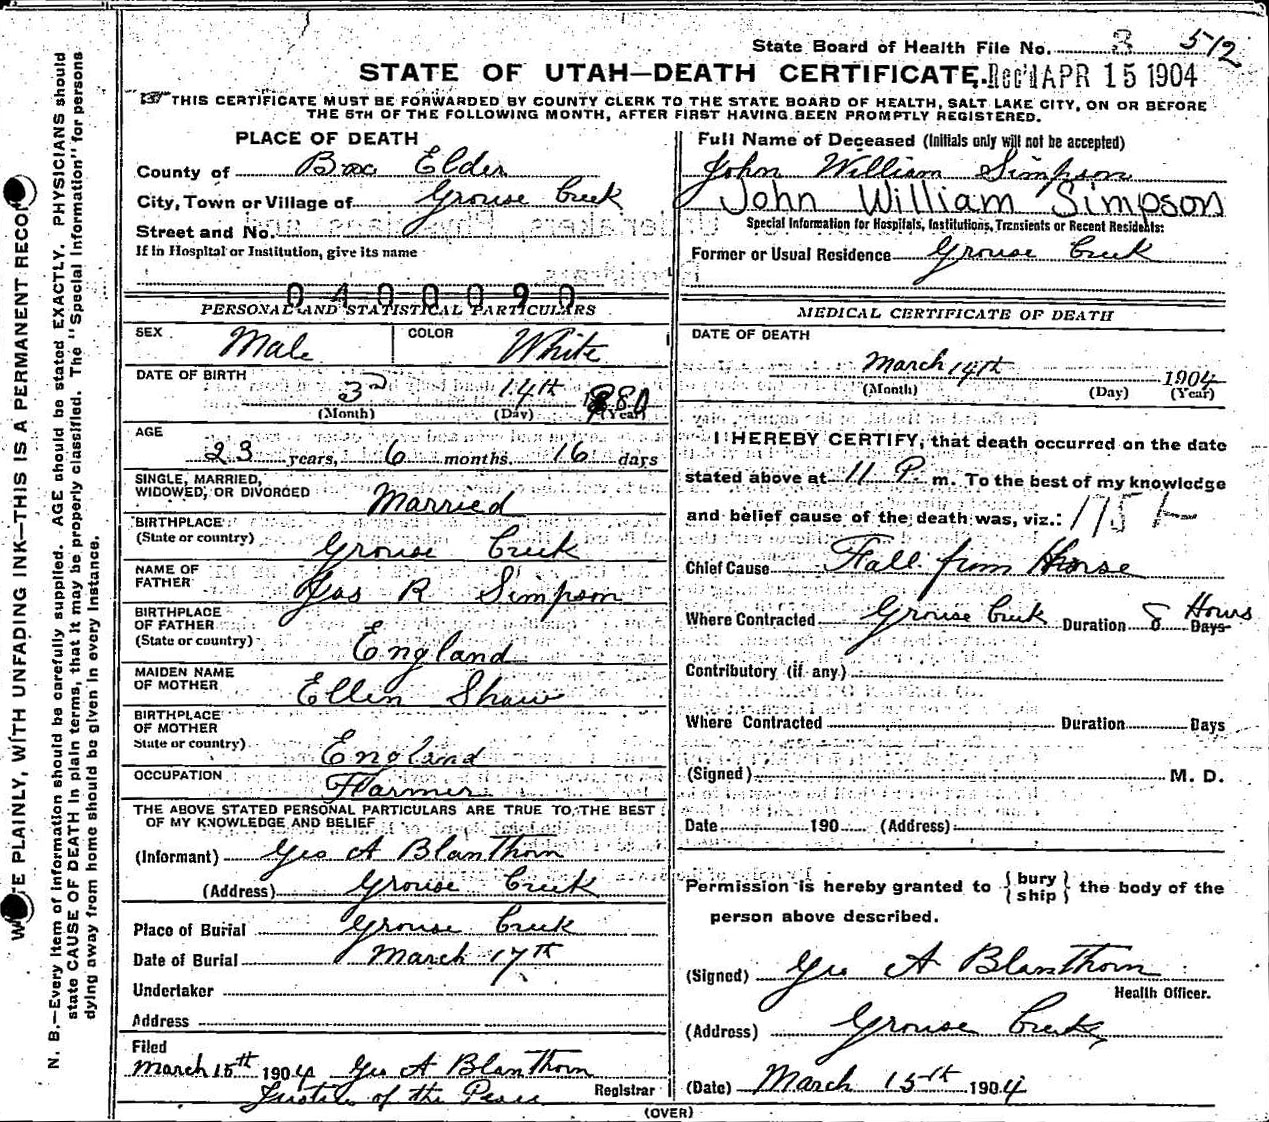 State Board of Health File No. 3 512
STATE OF UTAH—DEATH CERTIFICATE. Rec'd APR 15 1904
THIS CERTIFICATE MUST BE FORWARDED BY COUNTY CLERK TO THE STATE BOARD OF HEALTH, SALT LAKE CITY, ON OR BEFORE
THE 5TH OF THE FOLLOWING MONTH, AFTER FIRST HAVING BEEN PROMPTLY REGISTERED.
PLACE OF DEATH
County of Box Elder
City, Town or Village of Grouse Creek
Street and No.
If in Hospital or Institution, give its name
0400090
PERSONAL AND STATISTICAL PARTICULARS
SEX Male COLOR White
DATE OF BIRTH 3rd 14th 1880
(Month) (Day) (Year)
AGE
23 years, 6 months. 16 days
SINGLE, MARRIED,
WIDOWED, OR DIVORCED Married
BIRTHPLACE
(State or country) Grouse Creek
NAME OF
FATHER Jas R Simpson
BIRTHPLACE
OF FATHER
(State or country) England
MAIDEN NAME
OF MOTHER Ellen Shaw
BIRTHPLACE
OF MOTHER
State or country) England
OCCUPATION Farmer
THE ABOVE STATED PERSONAL PARTICULARS ARE TRUE TO THE BEST
OF MY KNOWLEDGE AND BELIEF
(Informant) Geo A Blanthorn
(Address) Grouse Creek
Place of Burial Grouse Creek
Date of Burial March 17th
Undertaker
Address
Filed
March 15th 1904 Geo A Blanthorn
Justice of the Peace Registrar
Full Name of Deceased (Initials only will not be accepted)
John William Simpson
John William Simpson
Special Information for Hospitals, Institutions, Transients or Recent Residents:
Former or Usual Residence Grouse Creek
MEDICAL CERTIFICATE OF DEATH
DATE OF DEATH
March 14th 1904
(Month) (Day) (Year)
I HEREBY CERTIFY, that death occurred on the date
stated above at 11 P. m. To the best of my knowledge
and belief cause of the death was, viz.:
Chief Cause Fall from Horse
Where Contracted Grouse Creek Duration 8 Hours Days
Contributory (if any)
Where Contracted Duration Days
(Signed) M. D.
Date 190 (Address)
Permission is hereby granted to { bury ship } the body of the
person above described.
(Signed) Geo A Blanthorn
Health Officer.
(Address) Grouse Creek
(Date) March 15th 1904
(OVER)
WRITE PLAINLY, WITH UNFADING INK—THIS IS A PERMANENT RECORD
N. B.—Every item of information should be carefully supplied. AGE should be stated EXACTLY. PHYSICIANS should
state CAUSE OF DEATH in plain terms, that it may be properly classified. The "Special Information" for persons
dying away from home should be given in every instance.